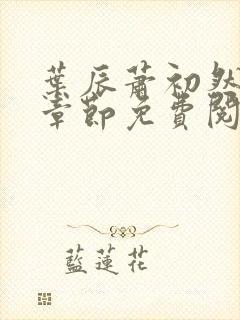 葉辰蕭初然
章節免費閱
藍蓮花